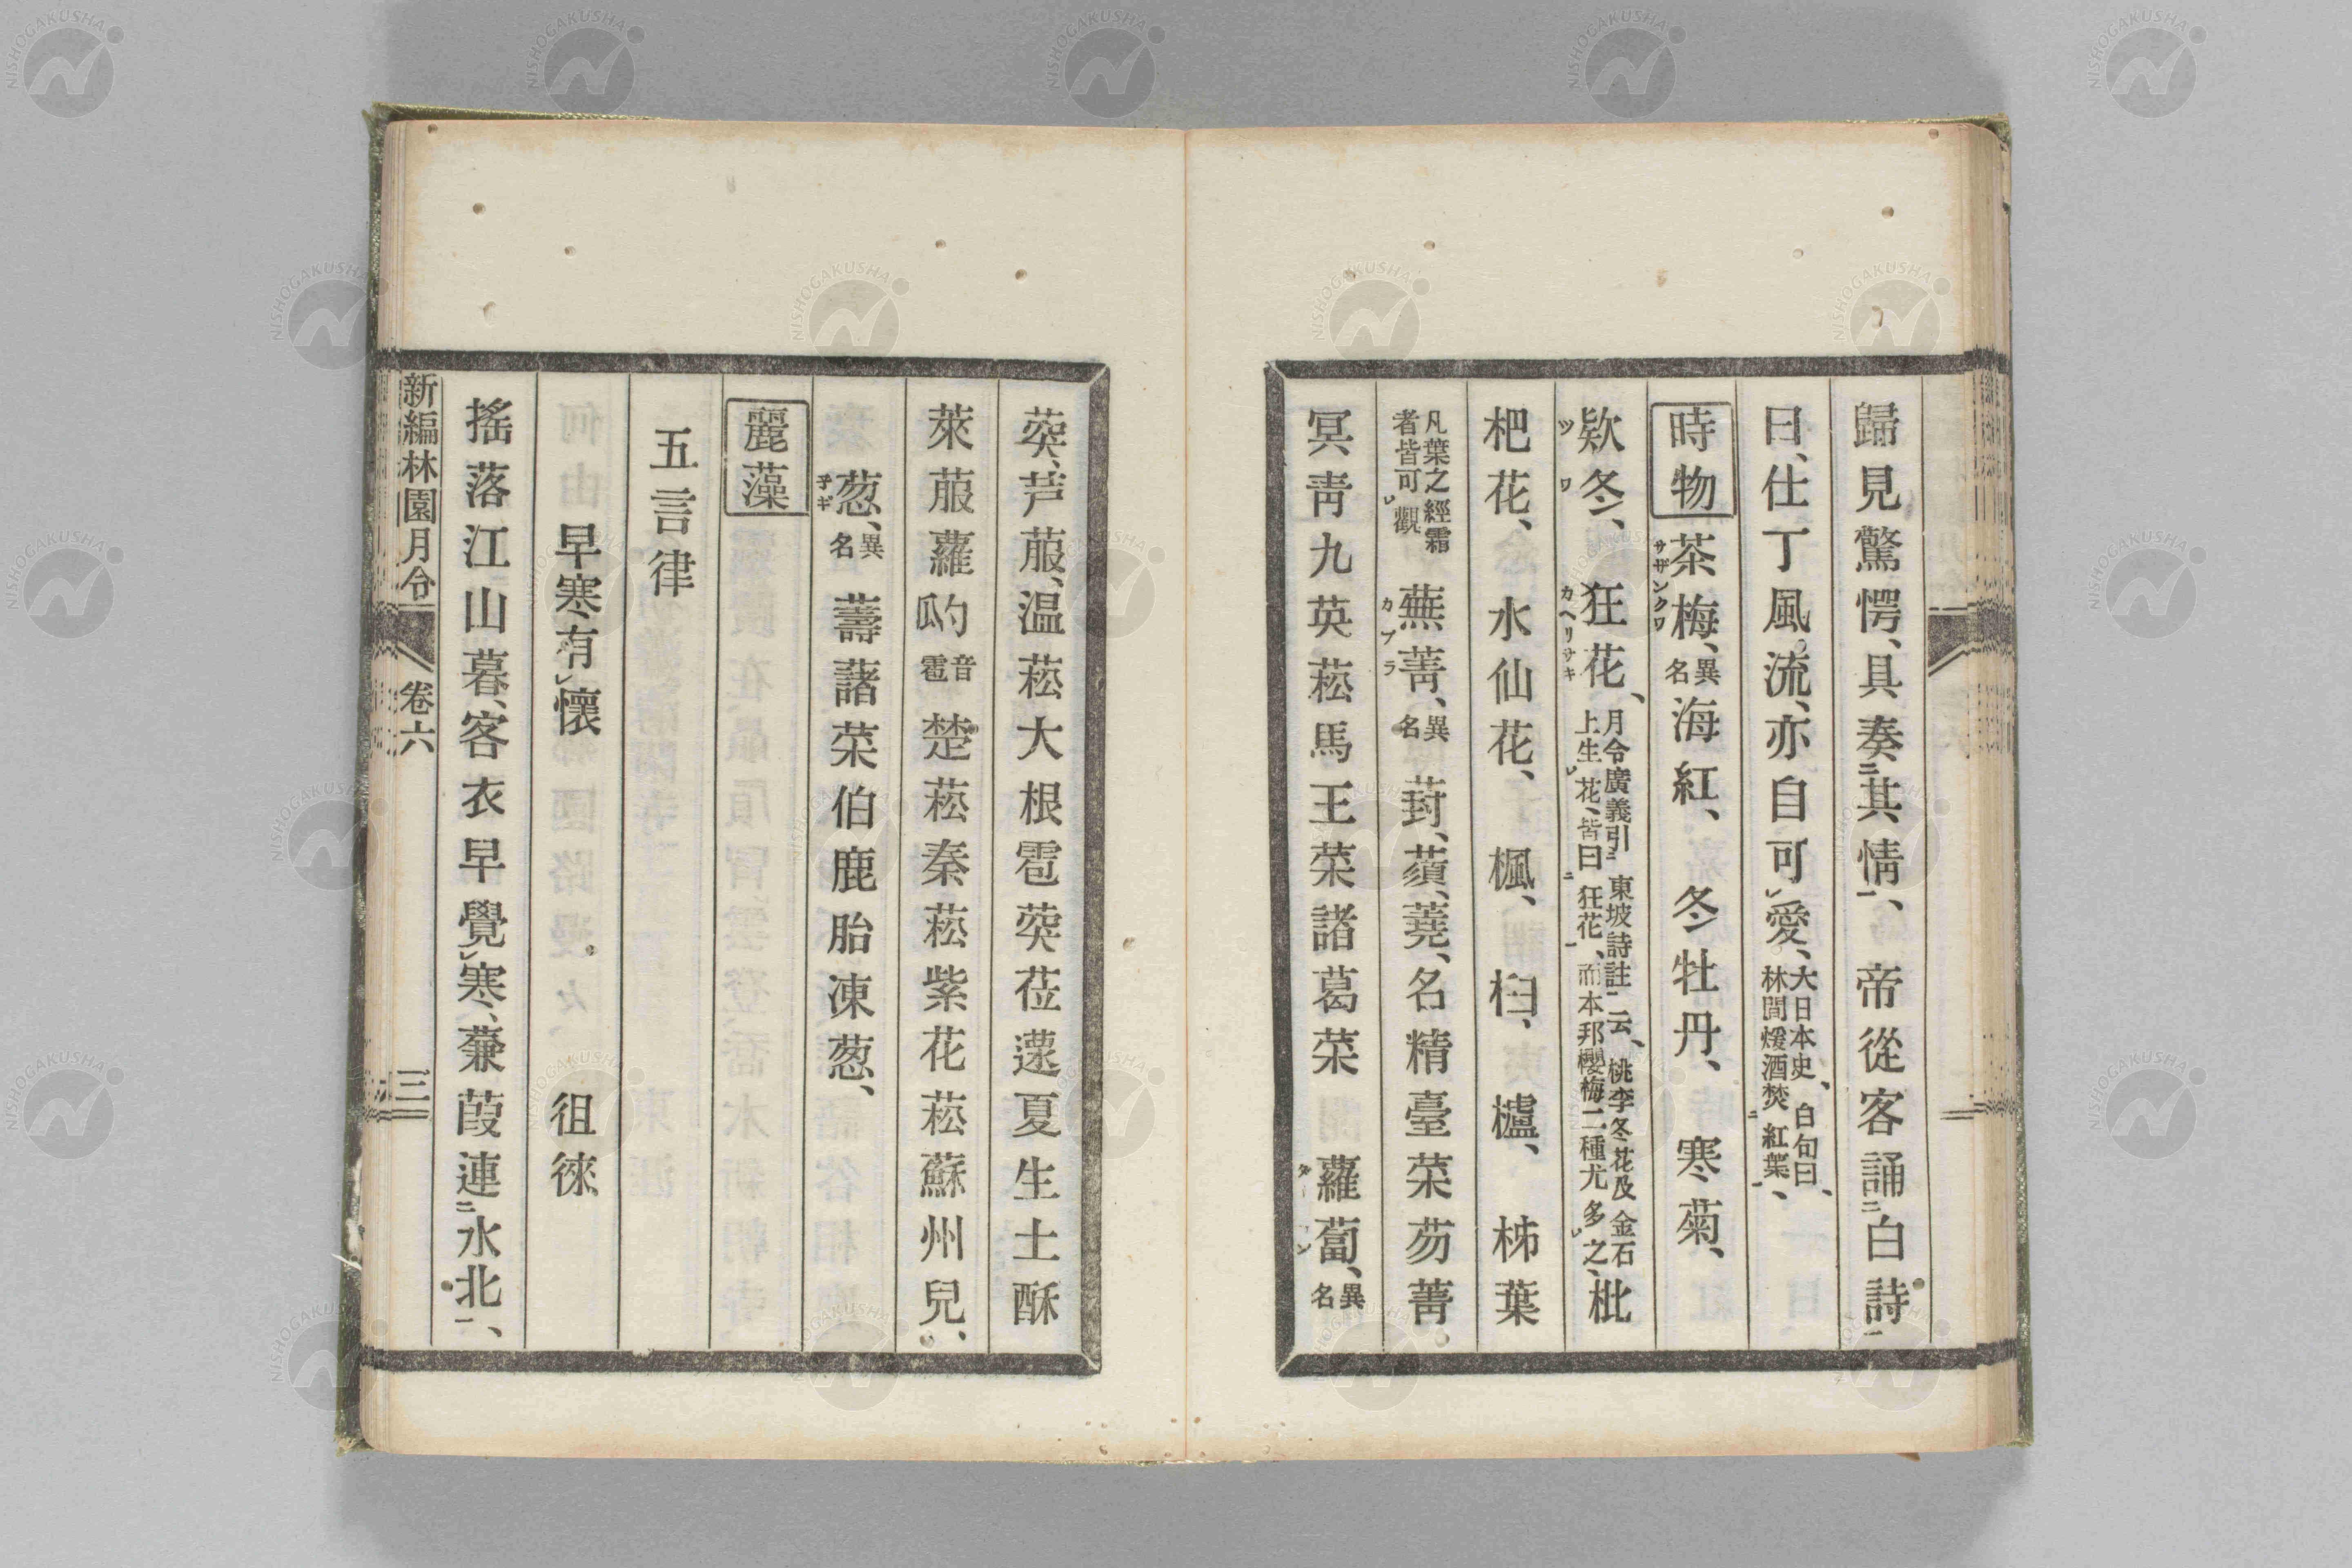 歸見驚愕、具奏二其情一、帝從容誦二白詩一
曰、仕丁風流、亦自可レ愛、大日本史、白句曰、林間煖酒焚二紅葉一、
時物 茶梅、サザンクワ 異名 海紅、 冬牡丹、 寒菊、
欵冬、ツワ 狂花、カヘリサキ 月令廣義引二東坡詩註一云、桃李冬花及金石上生レ花、皆曰二狂花一、而本邦櫻梅二種尤多レ之、枇
杷花、 水仙花、 楓、 桕、 櫨、 柹葉
凡葉之經霜者皆可レ觀 蕪菁、カブラ 異名 葑、蕦、蕘、名精臺菜芴菁
冥靑九英菘馬王菜諸葛菜 蘿蔔、異名
葖、芦菔、温菘大根雹葖莅蘧夏生土酥
萊菔蘿瓝音雹楚菘秦菘紫花菘蘇州兒、
葱、子ギ 異名 薵藷菜伯鹿胎凍葱、
麗藻
五言律
早寒有レ懷 徂徠
搖落江山暮、客衣早覺レ寒、蒹葭連二水北一、
新編林園月令 卷六 三
NISHOGAKUSHA